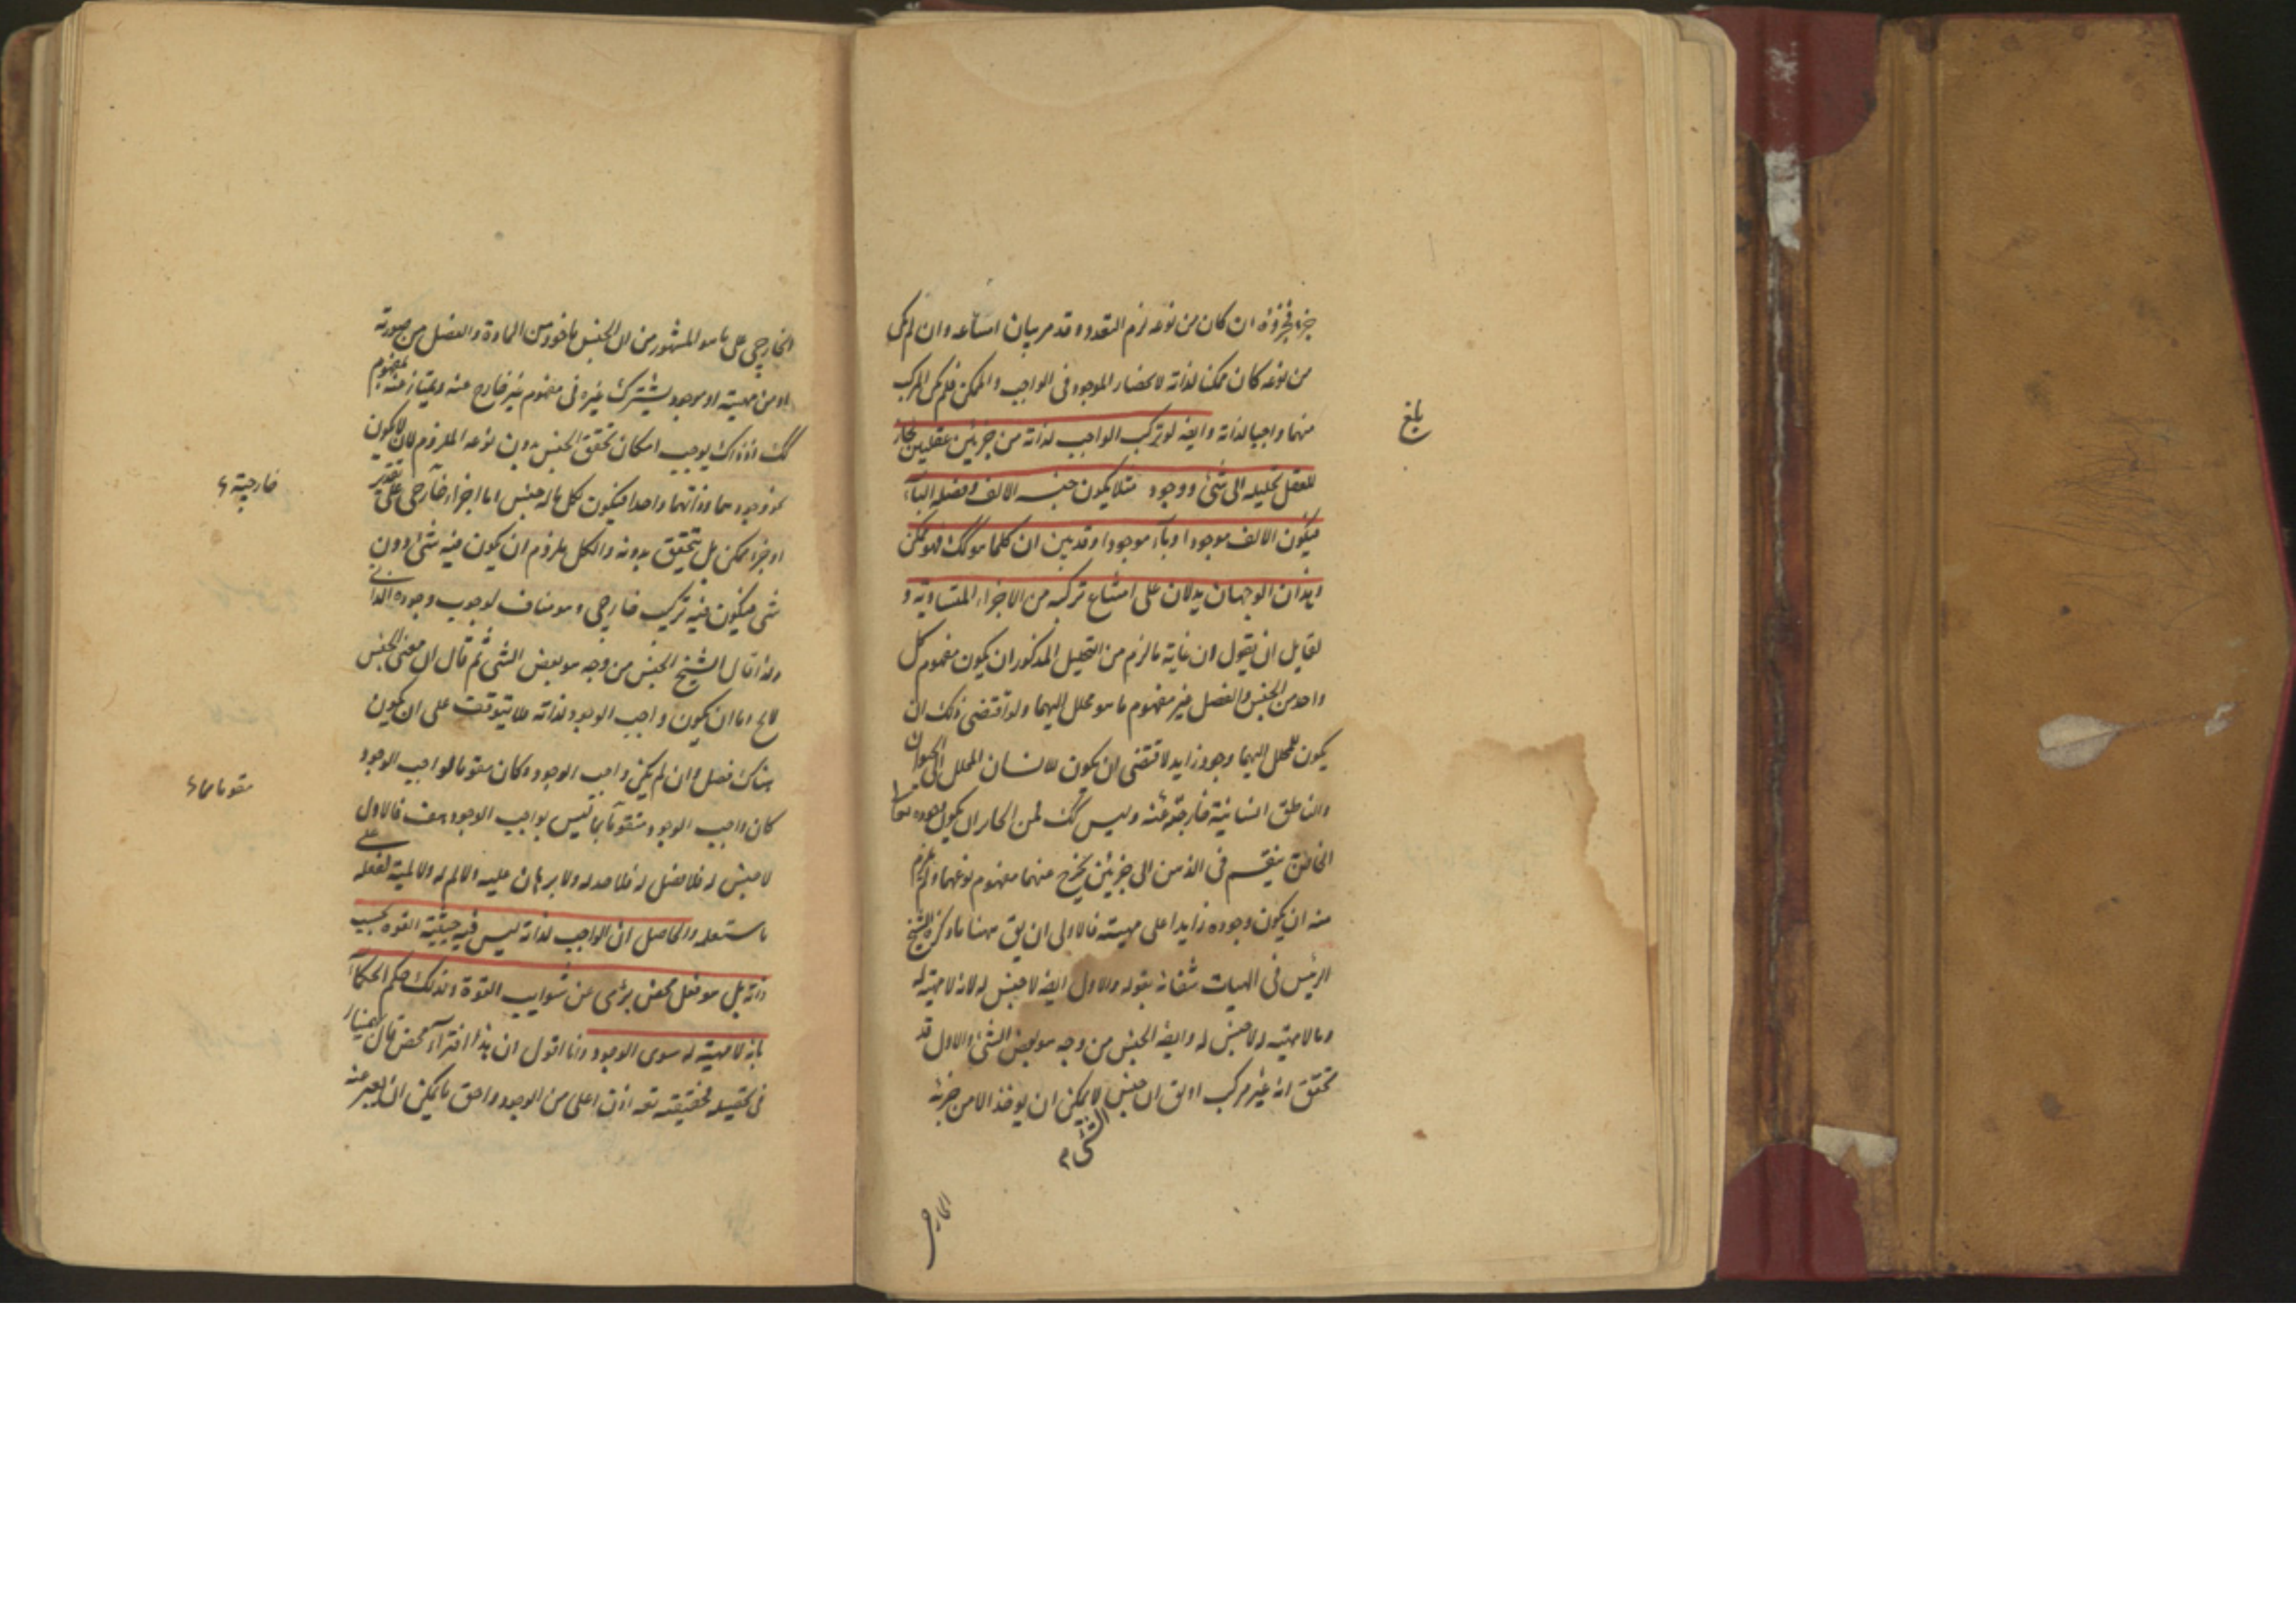 جزء فجزؤه ان كان من نوعه لزم التعدد وقد مر بيان امتناعه وان لم يكن
من نوعه كان ممكنا لذاته لانحصار الموجود فى الواجب والممكن فلم يكن المركب
منهما واجبا لذاته وايضه لو تركب الواجب لذاته من جزئين عقليين لجاز
للعقل تحليله الى شئ ووجود مثلا يكون جنسه الالف وفصله الباء
فيكون الالف موجودا وباء موجودا وقد بين ان كلما هو كك فهو ممكن
وهذان الوجهان يدلان على امتناع تركبه من الاجزاء المتساوية و
لقايل ان يقول ان غاية ما لزم من التحليل المذكور ان يكون مفهوم كل
واحد من الجنس والفصل غير مفهوم ما هو محلل اليهما ولو اقتضى ذلك ان
يكون للمحلل اليهما وجود زايد لاقتضى ان يكون للانسان المحلل الى الحيوان
والناطق انسانية خارجة عنه وليس كك فمن الجايز ان يكون
الخالق ينقسم فى الذهن الى جزئين يخرج منهما مفهوم نوعهما ولم يلزم
منه ان يكون وجوده زايدا على مهيته فالاولى ان يق ههنا ما ذكره الشيخ
الرئيس فى الهيات شفائه بقوله والاول ايضه لا جنس له لانه لا مهية له
وما لا مهيته له لا جنس له وايضه الجنس من وجه هو بعض الشئ والاول قد
تحقق انه غير مركب او يق ان جنس الشئ لا يمكن ان يوخذ الا من جزئه
الخارجى
بلغ
الخارجى على ما هو المشهور من ان الجنس ماخوذ من المادة والفصل من صورته
او من مهيته او موجود يشترك غيره فى مفهوم غير خارج عنه ويمتاز عنه بمفهوم
كك اذ ذاك يوجب امكان تحقق الجنس بدون نوعه الملزوم لان لا يكون
نحو وجودهما وذاتهما واحدا فيكون لكل ما له جنس اما اجزاء خارجى على تقدير
او جزء ممكن بل يتحقق بدونه والكل ملزوم ان يكون فيه شئ دون
شئ فيكون فيه تركيب خارجى وهو مناف لوجوب وجوده الذاتى
ولذا قال الشيخ الجنس من وجه هو بعض الشئ ثم قال ان معنى الجنس
لا يخ اما ان يكون واجب الوجود لذاته فلا يتوقف على ان يكون
هناك فصل وان لم يكن واجب الوجود وكان مقوما لواجب الوجود
كان واجب الوجود متقوما بما ليس بواجب الوجود هف فالاول
لا جنس له فلا فصل له فلا حد له ولا برهان عليه ولا لم له ولا لمية لفعله
ما ستعلمه والحاصل ان الواجب لذاته ليس فيه حيثية القوه بحسب
ذاته بل هو فعل محض برئ عن شوايب القوة ولذلك حكم الحكماء
بانه لا مهية له سوى الوجود وانا اقول ان هذا افتراء محض قال بهمنيار
فى تحصيله فحقيقته تعه اذن اعلى من الوجود واحق ما يمكن ان يعبر عنه
خارجيته